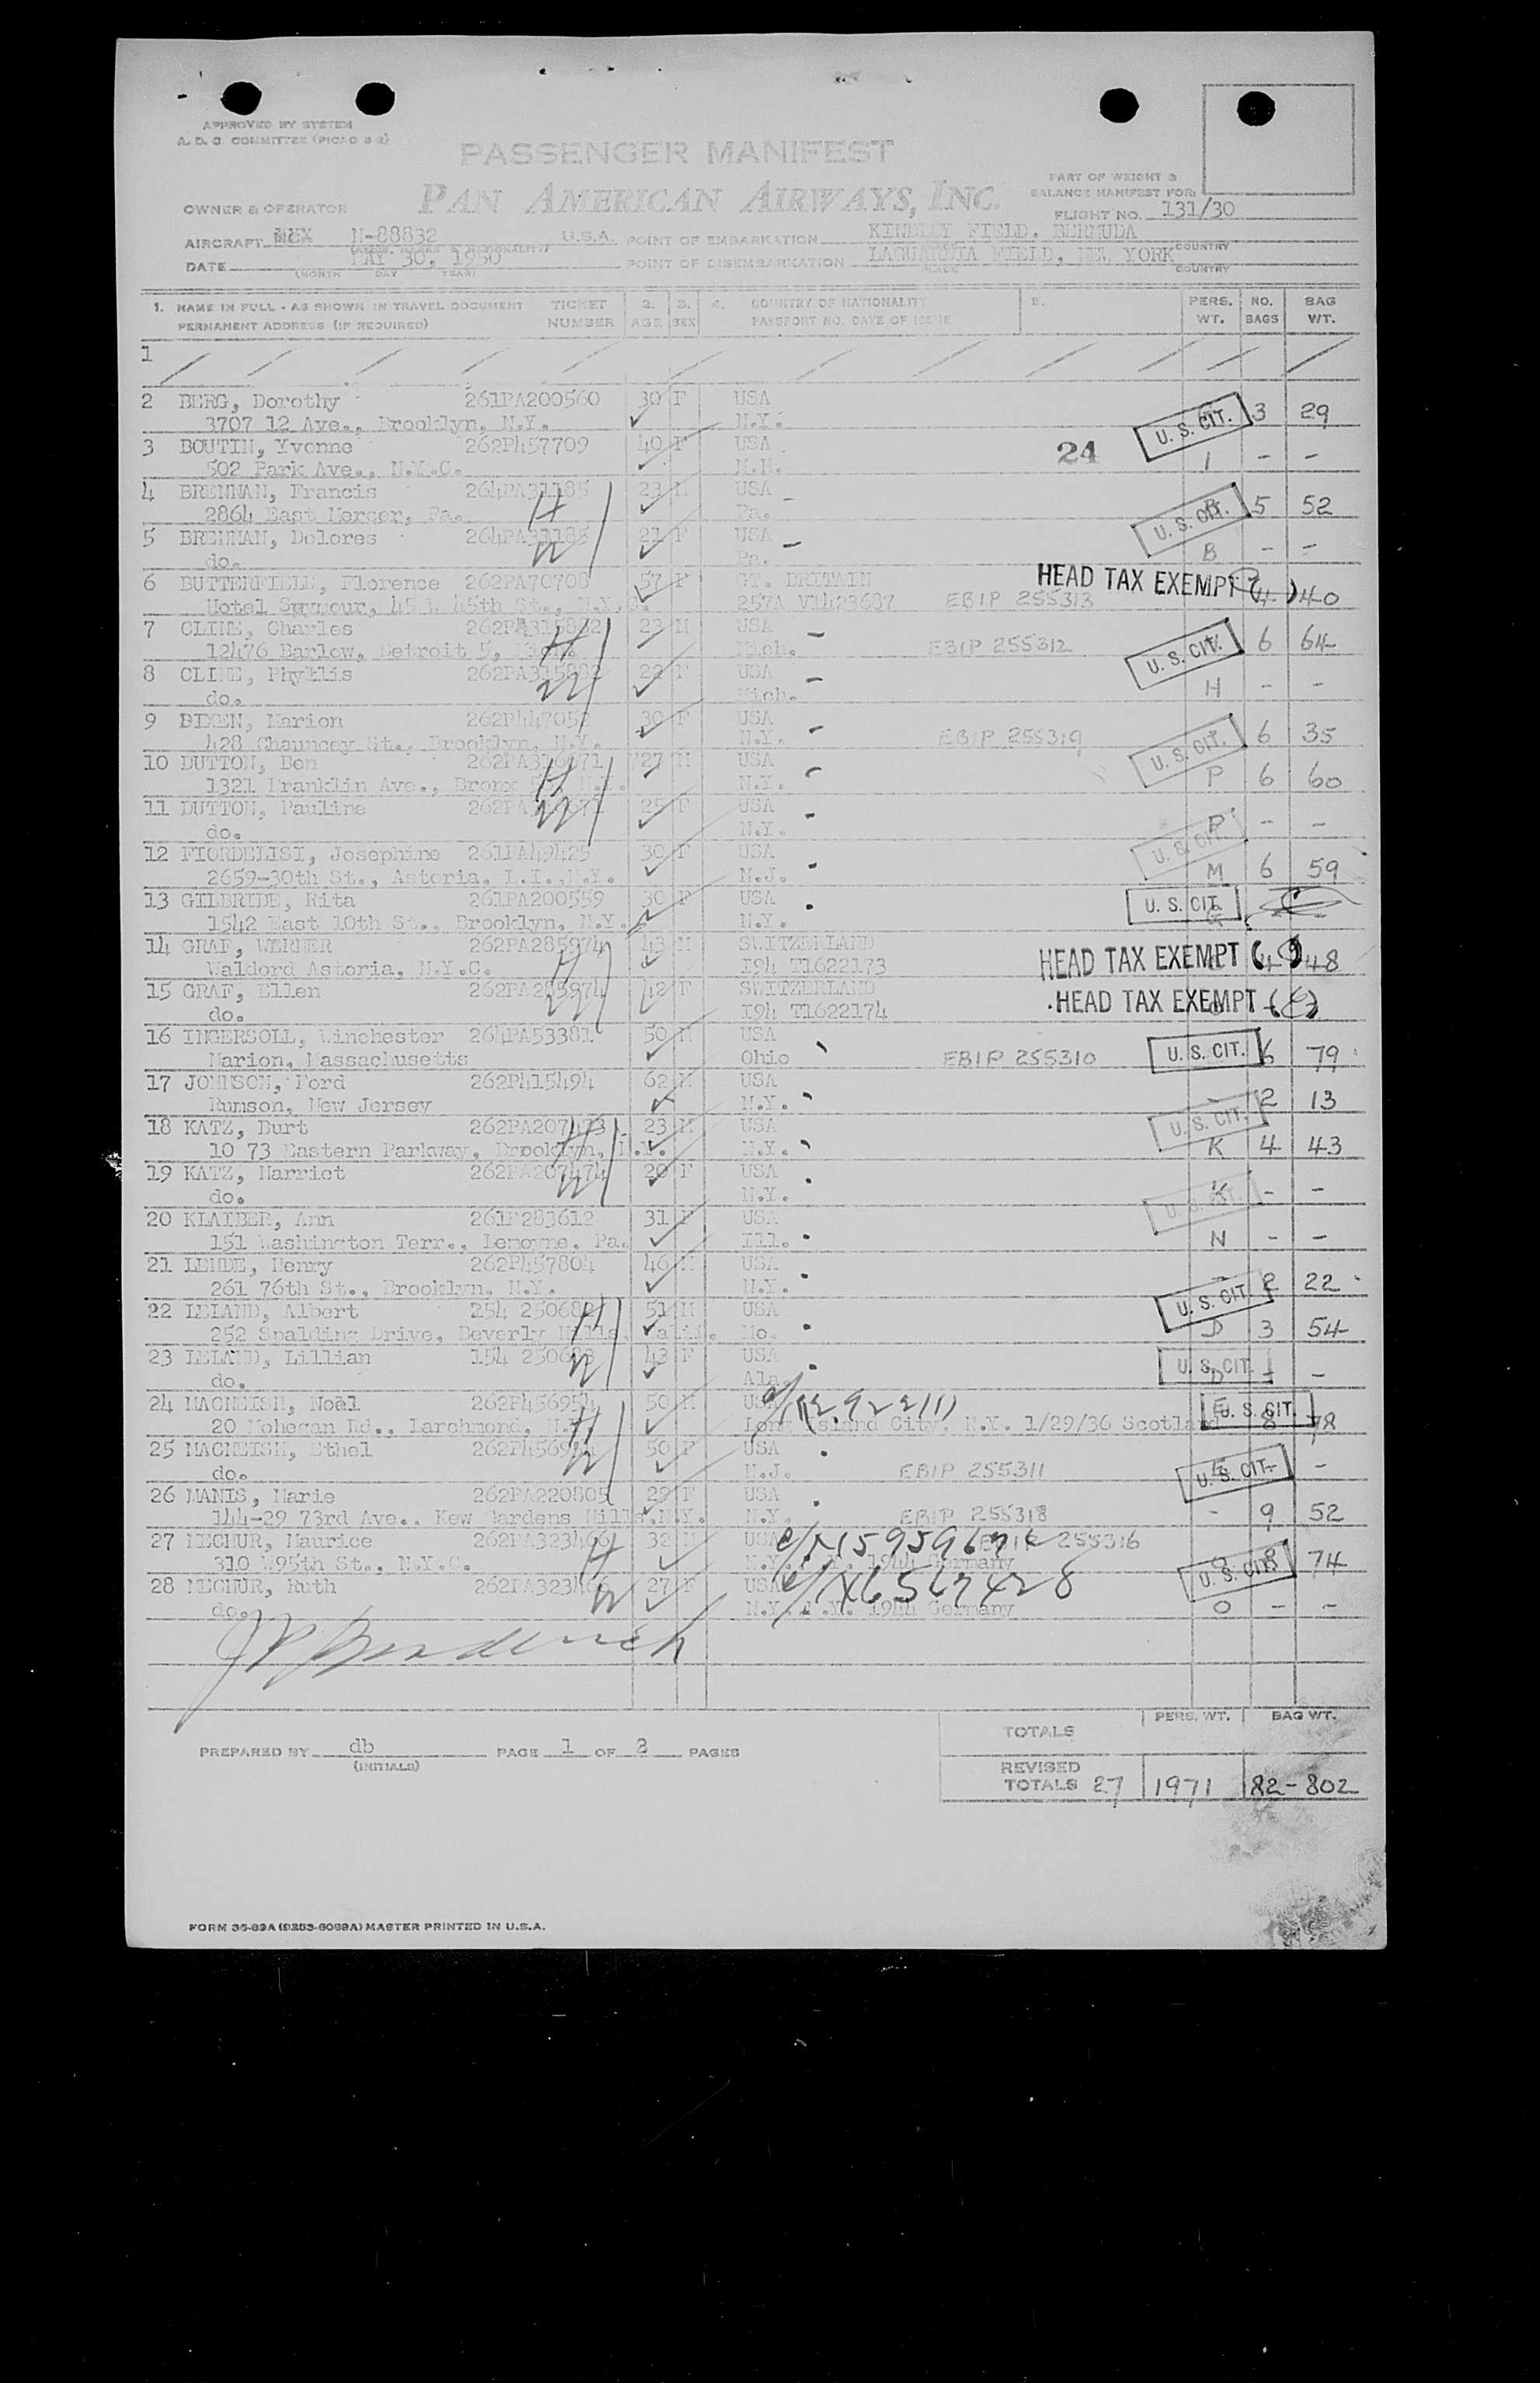 APPROVED BY SYSTEM
A. D. C. COMMITTEE (PICAO 8-2)
PASSENGER MANIFEST
PAN AMERICAN AIRWAYS, INC.
PART OF WEIGHT &
BALANCE MANIFEST FOR:
FLIGHT NO. 131/30
OWNER & OPERATOR
AIRCRAFT N-88832 U.S.A. POINT OF EMBARKATION KINDLEY FIELD, BERMUDA
DATE MAY 30, 1950 POINT OF DISEMBARKATION LAGUARDIA FIELD, NEW YORK COUNTRY
(MONTH DAY YEAR) PLACE COUNTRY
1. NAME IN FULL - AS SHOWN IN TRAVEL DOCUMENT TICKET 2. 3. 4. COUNTRY OF NATIONALITY 5. PERS. NO. BAG
PERMANENT ADDRESS (IF REQUIRED) NUMBER AGE SEX PASSPORT NO. DATE OF ISSUE WT. BAGS WT.
1
2 BERG, Dorothy 261PA200560 30 F USA
3707 12 Ave., Brooklyn, N.Y. N.Y. U. S. CIT. 3 29
3 BOUTIN, Yvonne 262P457709 40 F USA
502 Park Ave., N.Y.C. N.H. 24 1 - -
4 BRENNAN, Francis 264PA31185 23 M USA
2864 East Mercer, Pa. H Pa. U. S. CIT. 5 52
5 BRENNAN, Dolores 264PA31185 21 F USA
do. W Pa. B - -
6 BUTTERFIELD, Florence 262PA70708 57 F GT. BRITAIN HEAD TAX EXEMPT
Hotel Seymour, 45 W 45th St., N.Y.C. 257A V1423687 EBIP 255313 4 40
7 CLINE, Charles 262PA315882 23 M USA
12476 Barlow, Detroit 5, Mich. H Mich. EBIP 255312 U. S. CIT. 6 64
8 CLINE, Phyllis 262PA315882 22 F USA
do. W Mich. H - -
9 DIXEN, Marion 262P447052 30 F USA
428 Chauncey St., Brooklyn, N.Y. N.Y. EBIP 255319 U. S. CIT. 6 35
10 DUTTON, Ben 262PA326071 27 M USA
1321 Franklin Ave., Bronx N.Y. H N.Y. P 6 60
11 DUTTON, Pauline 25 F USA
do. W N.Y. P - -
12 FIORDELISI, Josephine 261PA49425 30 F USA U. S. CIT.
2659-30th St., Astoria, L.I., N.Y. N.J. M 6 59
13 GILBRIDE, Rita 261PA200559 30 F USA
1542 East 10th St., Brooklyn, N.Y. N.Y. U. S. CIT.
14 GRAF, WERNER 262PA285974 43 M SWITZERLAND
Waldord Astoria, N.Y.C. H I94 T1622173 HEAD TAX EXEMPT 4 48
15 GRAF, Ellen 262PA285974 42 F SWITZERLAND
do. W I94 T1622174 HEAD TAX EXEMPT
16 INGERSOLL, Winchester 264PA53381 50 M USA
Marion, Massachusetts Ohio EBIP 255310 U. S. CIT. 6 79
17 JOHNSON, Ford 262P415494 62 M USA
Rumson, New Jersey N.Y. - 2 13
18 KATZ, Burt 262PA207473 23 M USA U. S. CIT.
10 73 Eastern Parkway, Brooklyn, N.Y. H N.Y. K 4 43
19 KATZ, Harriet 262PA207474 20 F USA
do. W N.Y. K - - U. S. CIT.
20 KLAIBER, Ann 261P283612 31 F USA
151 Washington Terr., Lemoyne, Pa. Ill. N - -
21 LEHDE, Henry 262P457804 46 M USA
261 76th St., Brooklyn, N.Y. N.Y. - 2 22
22 LELAND, Albert 154 250682 51 M USA U. S. CIT.
252 Spalding Drive, Beverly Hills, Calif. H Mo. D 3 54
23 LELAND, Lillian 154 250683 43 F USA
do. W Ala. U. S. CIT. D - -
24 MACNEISH, Noel 262P456954 50 M USA U. S. CIT.
20 Mohegan Rd., Larchmond, N.Y. H Long Island City, N.Y. 1/29/36 Scotland 8 78
25 MACNEISH, Ethel 50 F USA
do. W N.J. EBIP 255311 U. S. CIT. - -
26 MANIS, Marie 262PA220805 29 F USA
144-29 73rd Ave., Kew Gardens Hills, N.Y. N.Y. EBIP 255318 - 9 52
27 MECHUR, Maurice 262PA323466 32 M USA 255316
310 W95th St., N.Y.C. H N.Y. N.Y. 1944 Germany U. S. CIT. O 8 74
28 MECHUR, Ruth 262PA323466 27 F USA
do. W N.Y. N.Y. 1944 Germany O - -
TOTALS PERS. WT. BAG WT.
PREPARED BY db PAGE 1 OF 2 PAGES
(INITIALS)
REVISED
TOTALS 27 1971 82-802
FORM 35-83A (9253-6088A) MASTER PRINTED IN U.S.A.